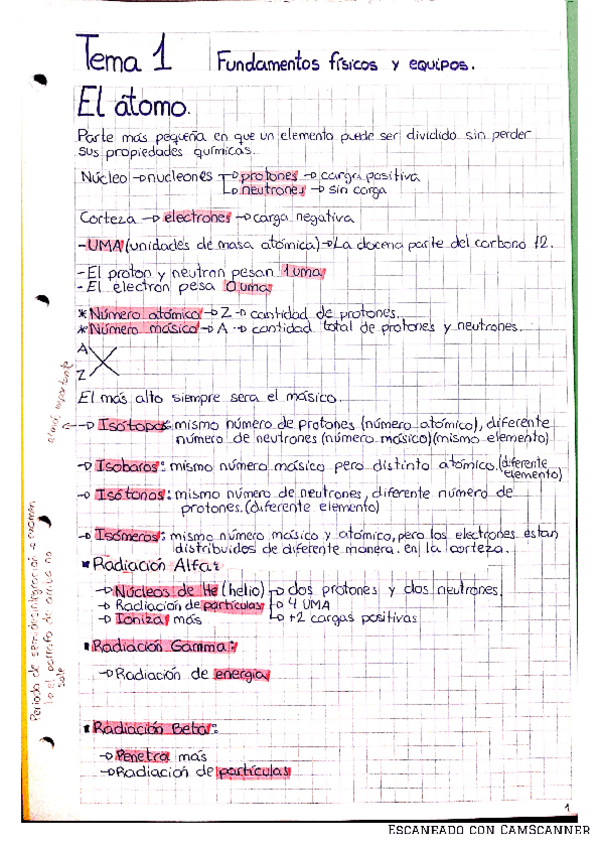 Tema 1 Fundamentos físicos y equipos.
El átomo.
Parte más pequeña en que un elemento puede ser dividido sin perder
sus propiedades químicas.
Núcleo → nucleones → protones → carga positiva
→ neutrones → sin carga
Corteza → electrones → carga negativa
- UMA (unidades de masa atómica) → La docena parte del carbono 12.
- El proton y neutron pesan 1 uma
- El electron pesa 0 uma
* Número atómico → Z → cantidad de protones.
* Número másico → A → cantidad total de protones y neutrones.
A
Z
El más alto siempre sera el másico.
el más importante
→ Isótopos: mismo número de protones (número atómico), diferente
número de neutrones (número másico) (mismo elemento)
→ Isobaros: mismo número másico pero distinto atómico. (diferente
elemento)
→ Isótonos: mismo número de neutrones, diferente número de
protones. (diferente elemento)
→ Isómeros: mismo número másico y atómico, pero los electrones estan
distribuidos de diferente manera. en la corteza.
Radiación Alfa:
→ Núcleos de He (helio) → dos protones y dos neutrones.
→ Radiacion de partículas → 4 UMA
→ Ioniza más → +2 cargas positivas
Radiación Gamma:
→ Radiación de energía
Radiación Beta:
→ Penetra más
→ Radiación de partículas
Periodo de semidesintegracion → examen
lo el parrafo de arriba no
sale
1
Escaneado con CamScanner